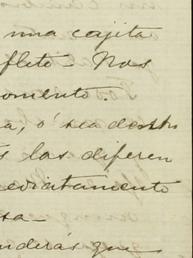 una cajita
flito. Nos
omento.
a, ó sea dentro
s las diferen
ediatamente
sa
nderás que